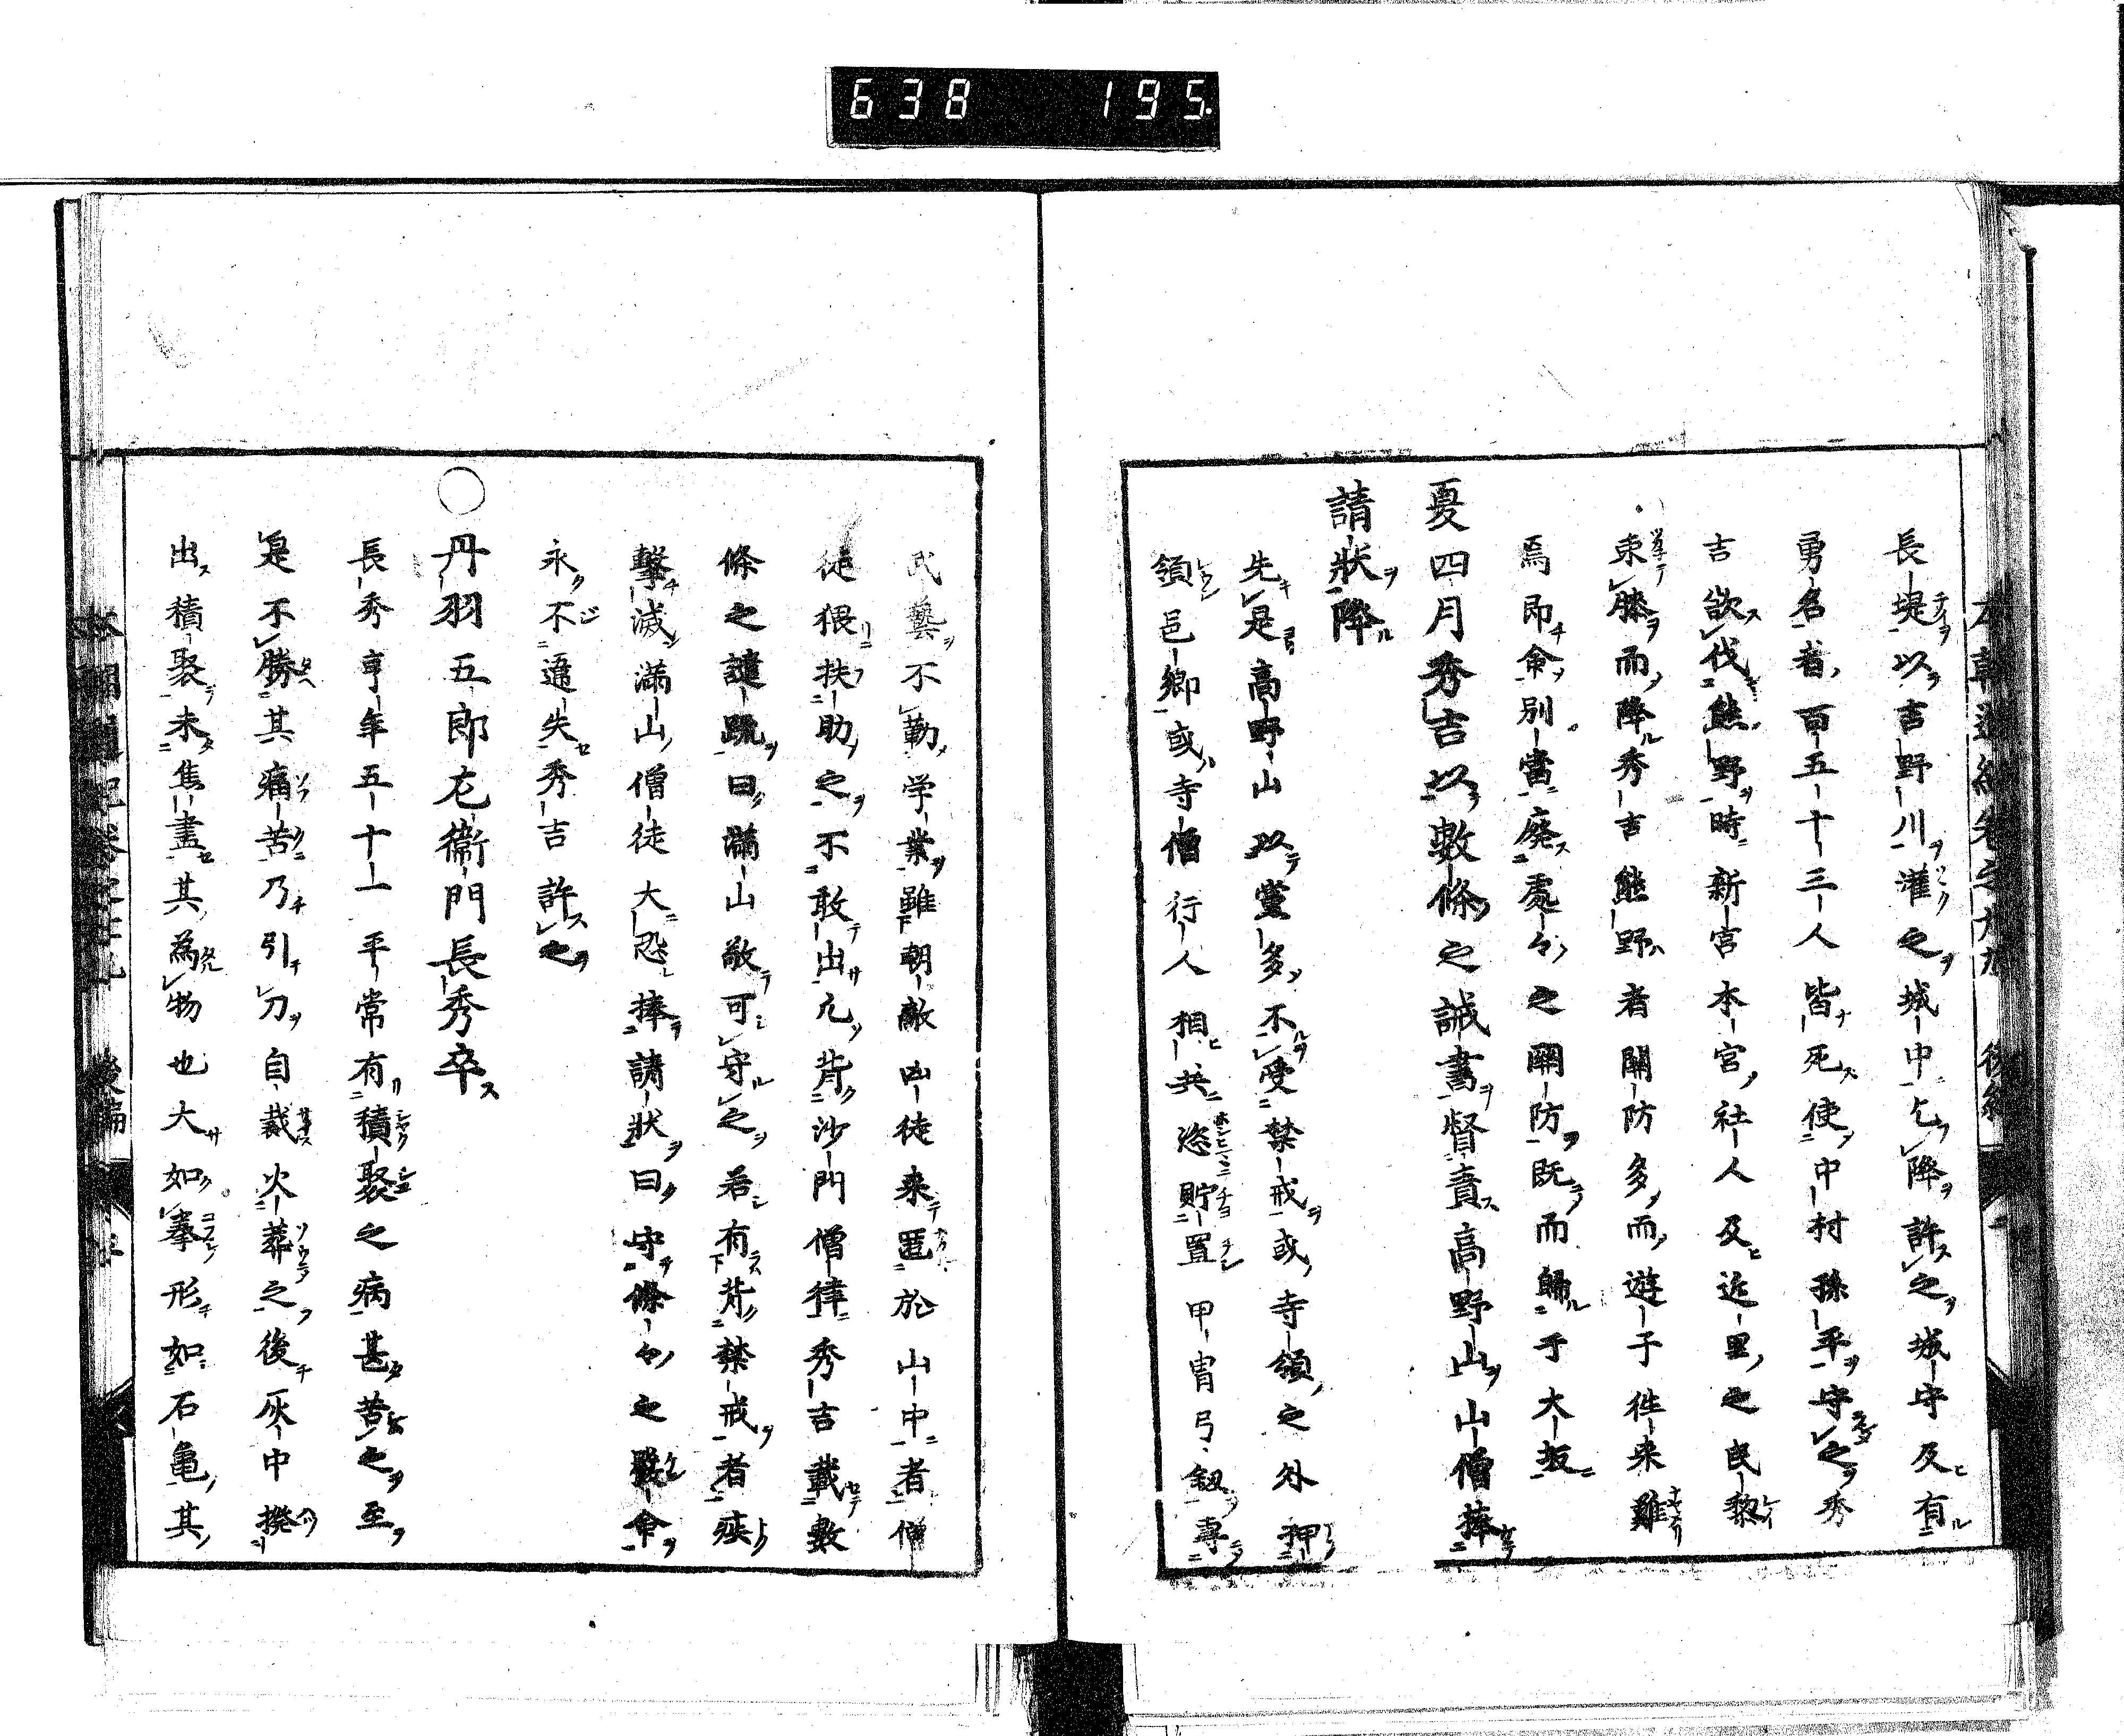 638 195.
長堤以吉野川灌之城中乞降許之城守及有
勇名者百五十三人皆死使中村孫平守之秀
吉欲伐熊野時新宮本宮社人及近里之民黎
束膝而降秀吉熊野者關防多而遊于徃来難
焉即命別當廢處々之關防既而歸于大坂
夏四月秀吉以數條之誡書督責高野山山僧捧
請狀降
先是高野山以黨多不受禁戒或寺領之外押
領邑鄉或寺僧行人相共恣貯置甲冑弓釼專
武藝不勤学業雖朝敵凶徒来匿於山中者僧
徒猥扶助之不敢出凢背沙門僧律秀吉載數
條之譴䟽曰滿山敬可守之若有背禁戒者疾
擊滅滿山僧徒大恐捧請狀曰守條々之嚴命
永不違失秀吉許之
○丹羽五郎左衛門長秀卒
長秀享年五十一平常有積聚之病甚苦之至
是不勝其痛苦乃引刀自裁火葬之後灰中撥
出積聚未焦盡其為物也大如拳形如石亀其